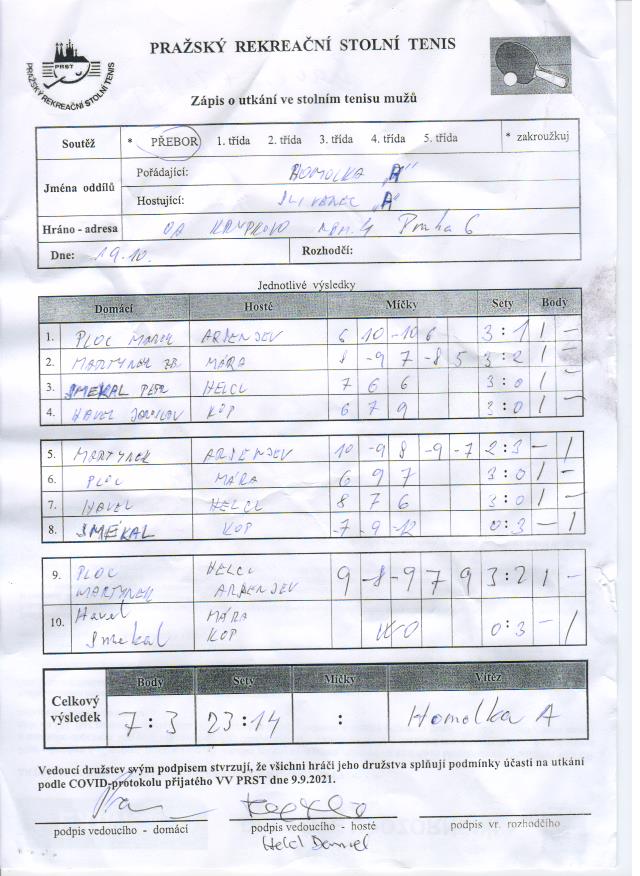 PRAŽSKÝ REKREAČNÍ STOLNÍ TENIS
PRST
PRAŽSKÝ REKREAČNÍ STOLNÍ TENIS
Zápis o utkání ve stolním tenisu mužů
Soutěž * PŘEBOR 1. třída 2. třída 3. třída 4. třída 5. třída * zakroužkuj
Jména oddílů
Pořádající: HOMOLKA „A"
Hostující: SLIVENEC „A"
Hráno - adresa OA Praha 6
Dne: 19.10. Rozhodčí:
Jednotlivé výsledky
Domácí Hosté Míčky Sety Body
1. PLOC MAREK ARSENJEV 6 10 -10 6 3:1 1 -
2. MARTYNEK ZB. MÁRA 8 -9 7 -8 5 3:2 1 -
3. SMEKAL PETR HELCL 7 6 6 3:0 1 -
4. HAVEL JAROSLAV KOP 6 7 9 3:0 1 -
5. MARTYNEK ARSENJEV 10 -9 8 -9 -7 2:3 - 1
6. PLOC MÁRA 6 9 7 3:0 1 -
7. HAVEL HELCL 8 7 6 3:0 1 -
8. SMEKAL KOP -7 -9 -12 0:3 - 1
9. PLOC HELCL
MARTYNEK ARSENJEV 9 -8 -9 7 9 3:2 1 -
10. Havel MÁRA
Smekal KOP 0:3 - 1
Body Sety Míčky Vítěz
Celkový výsledek 7:3 23:14 : Homolka A
Vedoucí družstev svým podpisem stvrzují, že všichni hráči jeho družstva splňují podmínky účasti na utkání
podle COVID-protokolu přijatého VV PRST dne 9.9.2021.
podpis vedoucího - domácí podpis vedoucího - hosté podpis vr. rozhodčího
Helcl Daniel